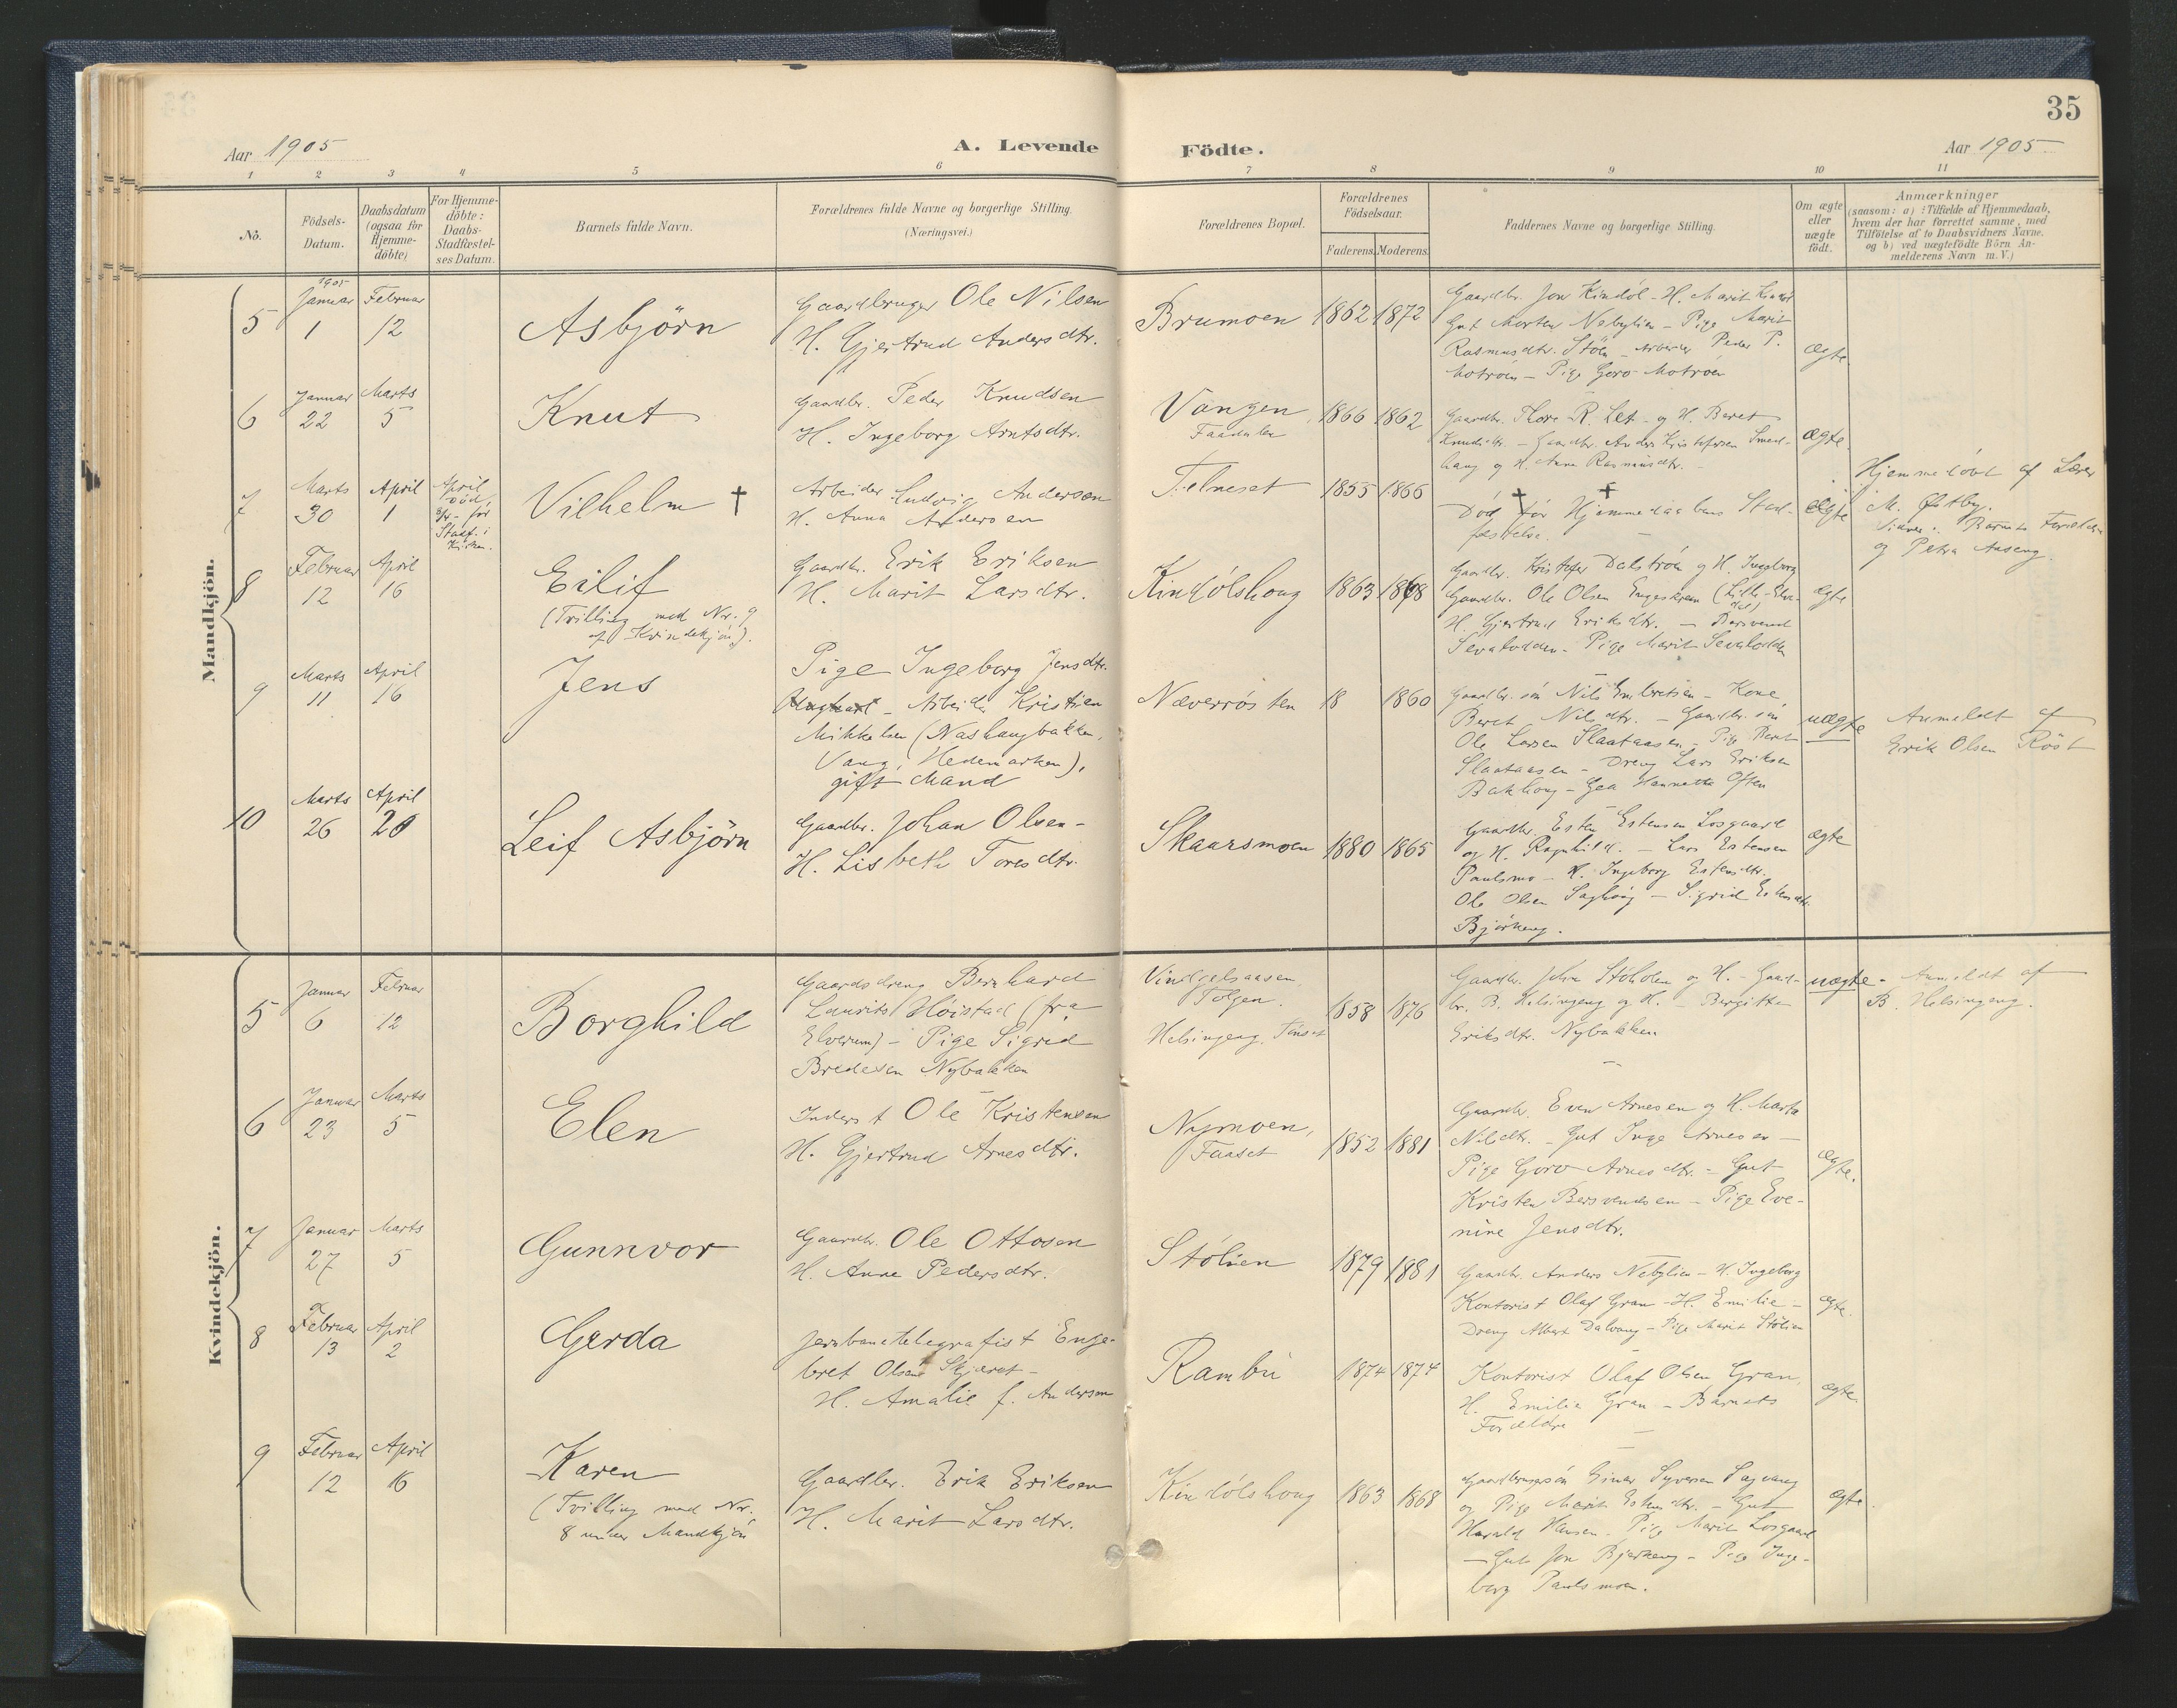 35
Aar 1905
A. Levende Födte.
Aar 1905
1 2 3 4 5 6 7 8 9 10 11
No.
Födsels-
Datum.
Daabsdatum
(ogsaa for
Hjemme-
döbte)
For Hjemme-
döbte:
Daabs-
Stadfæstel-
ses Datum.
Barnets fulde Navn.
Forældrenes fulde Navne og borgerlige Stilling.
(Næringsvei.)
Forældrenes Bopæl.
Forældrenes
Födselsaar.
Faderens. Moderens.
Faddernes Navne og borgerlige Stilling.
Om ægte
eller
uægte
födt.
Anmærkninger
(saasom: a) i Tilfælde af Hjemmedaab,
hvem der har forrettet samme, med
Tilföielse af to Daabsvidners Navne.
og b) ved uægtefödte Börn An-
melderens Navn m. V.)
Mandkjön.
5
1905
Januar
1
Februar
12
Asbjörn
Gaardbruger Ole Nilsen
H. Gjertrud Andersdtr.
Brumoen
1862 1872
Gaardbr. Jon Kindöl - H. Marit Kindöl
Gut Morten Nebylien - Pige Marit
Rasmusdtr. Stöen - Arbeider Peder P.
Motröen - Pige Goro Motröen
ægte
6
Januar
22
Marts
5
Knut
Gaardbr. Peder Knudsen
H. Ingeborg Arntsdtr.
Vangen,
Faadalen
1866 1862
Gaardbr. Thore R. Let - og H. Beret
Knudsdtr. - Gaardbr. Anders Kristofersen Smed-
haug og H. Anne Rasmusdtr. -
ægte.
7
Marts
30
April
1
April
död
før
Stadf. i
Kirken.
Vilhelm †
Arbeider Ludvig Andersen
H. Anna Andersen
Telneset
1855 1866
† †
Död för Hjemmedaabens Stad-
fæstelse.
ægte
Hjemmedöbt af Lærer
M. Östby.
Vidner: Barnets Forældre
og Petra Aaseng.
8
Februar
12
April
16
Eilif
(Tvilling med Nr. 9
af Kvindekjön).
Gaardbr. Erik Eriksen
H. Marit Larsdtr.
Kindölshoug
1863 1868
Gaardbr. Kristofer Dalströen og H. Ingeborg
Gaardbr. Ole Olsen Engeskroen (Lille-Elve-
dal)
H. Gjertrud Eriksdtr. -
Sevatodden - Pige Marit Sevatodden
ægte
9
Marts
11
April
16
Jens
Pige Ingeborg Jensdtr.
- Arbeider Kristian
Mikkelsen (Nashaugbakken,
Vang, Hedemarken),
gift Mand
Næverrösten
18 1860
Gaardbr. sön Nils Embretsen - Kone
Beret Nilsdtr. - Gaardbr. sön
Ole Larsen Slaataasen - Pige Beret
Slaataasen - Dreng Lars Eriksen
Bakhoug -
uægte
Anmeldt af
Erik Olsen Röst
10
Marts
26
April
20
Leif Asbjörn
Gaardbr. Johan Olsen -
H. Lisbeth Toresdtr.
Skaarsmoen
1880 1865
Gaardbr. Esten Estensen Losgaard
og H. Ragnhild. - Lars Estensen
Paulsmo - H. Ingeborg Estensdtr.
Ole Olsen Saghöug - Sigrid Estensdtr.
Bjørkeng.
ægte
Kvindekjön.
5
Januar
6
Februar
12
Borghild
Gaardsdreng Bernhard
Laurits Höistad (fra
Elverum) - Pige Sigrid
Bredesen Nybakken
Vindgelsaasen,
Tolgen.
Helsingeng, Tönset
1858 1876
Gaardbr. John Stoholen og H. - Gaard-
br. B. Helsingeng og H. - Bergitte
Eriksdtr. Nybakken
uægte -
Anmeldt af
B. Helsingeng.
6
Januar
23
Marts
5
Elen
Inderst Ole Kristensen
H. Gjertrud Arnesdtr.
Nymoen,
Faaset
1852 1881
Gaardbr. Even Arnesen og H. Marta
Nilsdtr. - Gut Inge Arnesen -
Pige Goro Arnesdtr. - Gut
Kristen Bersvendsen - Pige Eve-
nine Jensdtr.
ægte.
7
Januar
27
Marts
5
Gunnvor
Gaardbr. Ole Ottosen
H. Anne Pedersdtr.
Stölien
1879 1881
Gaardbr. Anders Nebylien - H. Ingeborg
Kontorist Olaf Gran - H. Emilie -
Dreng Albert Dalvang - Pige Marit Stölien
ægte.
8
Februar
13
April
2
Gerda
Jernbanetelegrafist Enge-
bret Olsen Skjæret -
H. Amalie f. Andersen
Rambu
1874 1874
Kontorist Olaf Olsen Gran,
H. Emilie Gran - Barnets
Forældre
ægte
9
Februar
12
April
16
Karen
(Tvilling med Nr.
8 under Mandkjön
Gaardbr. Erik Eriksen
H. Marit Larsdtr.
Kindölshoug
1863 1868
Gaardbrugersön Einar Syversen Sagvang
og Pige Marit Estensdtr. - Gut
Harald Hansen - Pige Marit Losgaard
- Gut Jon Bjørkeng - Pige Inge-
borg Paulsmoen.
ægte.